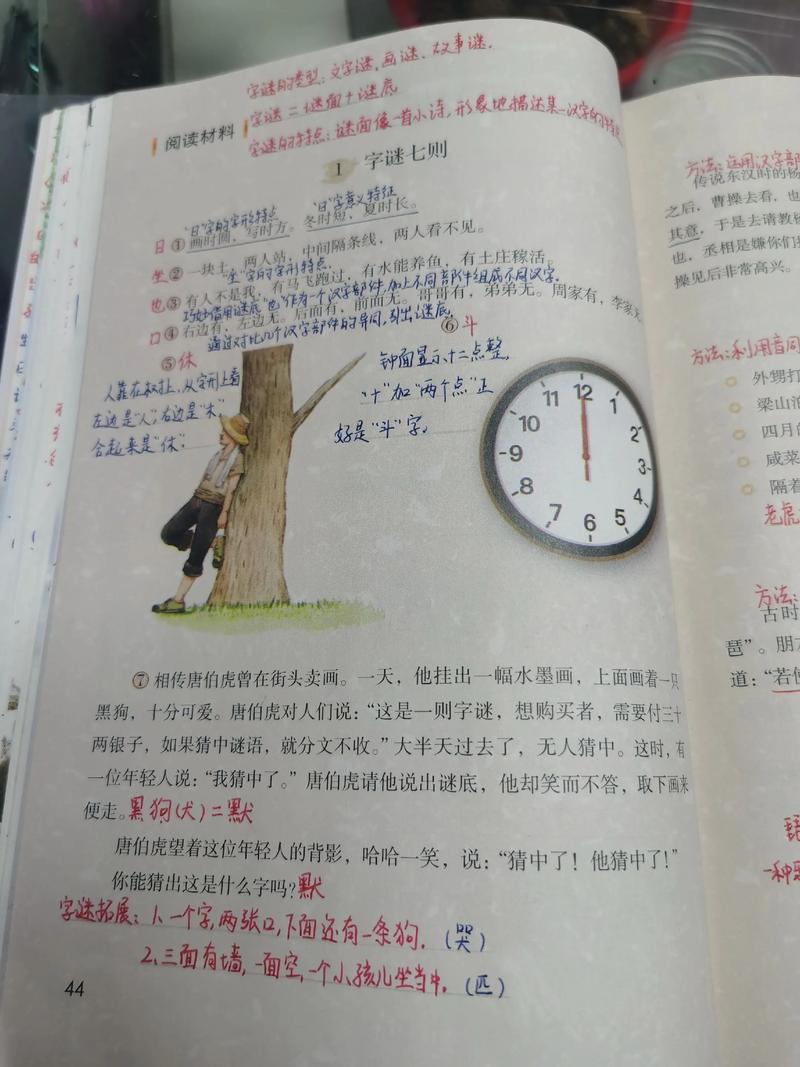 字谜的类型：文字谜、画谜、故事谜.
字谜＝谜面＋谜底
阅读材料
字谜的特点：谜面像一首小诗，形象地描述某一汉字的特点
1 字谜七则
"日"字的字形特点 "日"字意义特征
日 ①画时圆，写时方。冬时短，夏时长。
坐 ②一块土，两人站，中间隔条线，两人看不见。
"坐"字的字形特点.
也 ③有人不是我，有马飞跑过，有水能养鱼，有土庄稼活。
巧妙借用谜底"也"作为一个汉字部件,加上不同部件组成不同汉字.
口 ④右边有，左边无。后面有，前面无。哥哥有，弟弟无。周家有，李家无
通过对比几个汉字部件的异同,引出谜底.
⑤休
人靠在树上,从字形上看
左边是"人",右边是"木"
合起来是"休".
⑥斗
钟面显示十二点整,
"十"加"两个点"正
好是"斗"字.
11 12 1
10 2
9 3
8 4
7 6 5
⑦ 相传唐伯虎曾在街头卖画。一天，他挂出一幅水墨画，上面画着一只
黑狗，十分可爱。唐伯虎对人们说：“这是一则字谜，想购买者，需要付三十
两银子，如果猜中谜语，就分文不收。”大半天过去了，无人猜中。这时，有
一位年轻人说：“我猜中了。”唐伯虎请他说出谜底，他却笑而不答，取下画来
便走。黑狗(犬)＝默
唐伯虎望着这位年轻人的背影，哈哈一笑，说：“猜中了！他猜中了！”
你能猜出这是什么字吗？默
字谜拓展：1、一个字,两张口,下面还有一条狗.（哭）
2、三面有墙,一面空,一个小孩儿坐当中.（匹）
44
方法：运用汉字部
传说东汉时的杨
之后，曹操去看，也
其意，于是去请教杨
也，丞相是嫌你们
操见后非常高兴。
方法：利用音同
外甥打
梁山泊
四月的
咸菜
隔着
老虎
方法：
古时
琶”。朋
道：“若使
琵
一种